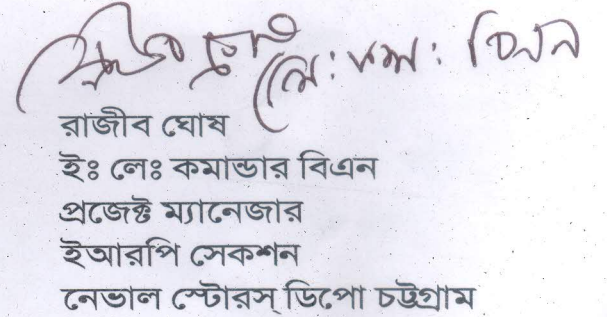 লেঃ কমাঃ বিএন
রাজীব ঘোষ
ইঃ লেঃ কমান্ডার বিএন
প্রজেক্ট ম্যানেজার
ইআরপি সেকশন
নেভাল স্টোরস্ ডিপো চট্টগ্রাম